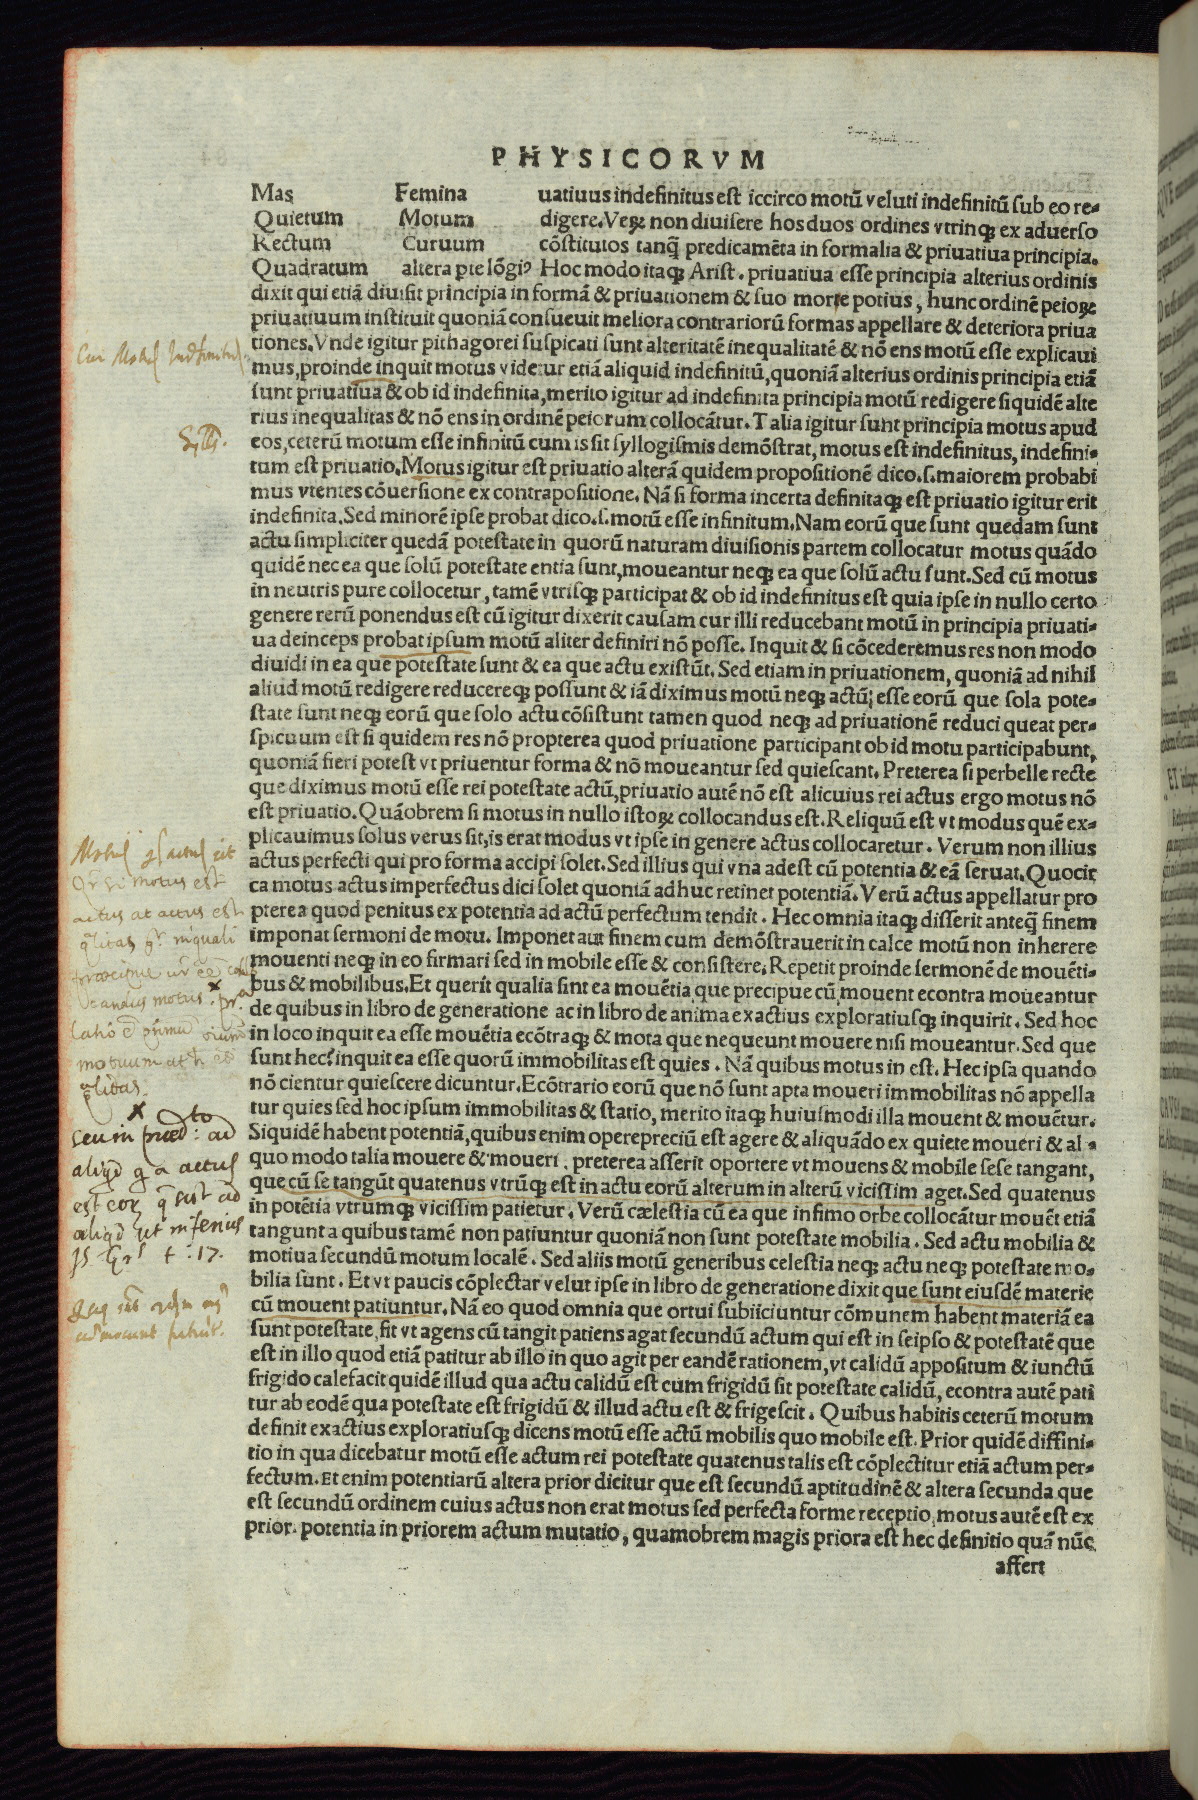 PHYSICORVM
Mas Femina uatiuus indefinitus est iccirco motū veluti indefinitū sub eo re-
Quietum Motum digere. Veꝝ non diuisere hos duos ordines vtrinqȝ ex aduerso
Rectum Curuum cōstitutos tanq̄ predicamēta in formalia & priuatiua principia.
Quadratum altera pte lōgiꝰ Hoc modo itaqȝ Arist. priuatiua esse principia alterius ordinis
dixit qui etiā diuisit principia in formā & priuationem & suo morte potius, hunc ordinē peioꝝ
priuatiuum instituit quoniā consueuit meliora contrariorū formas appellare & deteriora priua
tiones. Vnde igitur pithagorei suspicati sunt alteritatē inequalitatē & nō ens motū esse explicaui
mus, proinde inquit motus videtur etiā aliquid indefinitū, quoniā alterius ordinis principia etiā
sunt priuatiua & ob id indefinita, merito igitur ad indefinita principia motū redigere siquidē alte
rius inequalitas & nō ens in ordinē peiorum collocātur. Talia igitur sunt principia motus apud
eos, ceterū motum esse infinitū cum is sit syllogismis demōstrat, motus est indefinitus, indefini-
tum est priuatio. Motus igitur est priuatio alterā quidem propositionē dico .s. maiorem probabi
mus vtentes cōuersione ex contrapositione. Nā si forma incerta definitaqȝ est priuatio igitur erit
indefinita. Sed minorē ipse probat dico .s. motū esse infinitum. Nam eorū que sunt quedam sunt
actu simpliciter quedā potestate in quorū naturam diuisionis partem collocatur motus quādo
quidē nec ea que solū potestate entia sunt, moueantur neqȝ ea que solū actu sunt. Sed cū motus
in neutris pure collocetur, tamē vtrisqȝ participat & ob id indefinitus est quia ipse in nullo certo
genere rerū ponendus est cū igitur dixerit causam cur illi reducebant motū in principia priuati-
ua deinceps probat ipsum motū aliter definiri nō posse. Inquit & si cōcederemus res non modo
diuidi in ea que potestate sunt & ea que actu existūt. Sed etiam in priuationem, quoniā ad nihil
aliud motū redigere reducereqȝ possunt & iā diximus motū neqȝ actū; esse eorū que sola pote-
state sunt neqȝ eorū que solo actu cōsistunt tamen quod neqȝ ad priuationē reduci queat per-
spicuum est si quidem res nō propterea quod priuatione participant ob id motu participabunt,
quoniā fieri potest vt priuentur forma & nō moueantur sed quiescant. Preterea si perbelle recte
que diximus motū esse rei potestate actū, priuatio autē nō est alicuius rei actus ergo motus nō
est priuatio. Quāobrem si motus in nullo istoꝝ collocandus est. Reliquū est vt modus quē ex-
plicauimus solus verus sit, is erat modus vt ipse in genere actus collocaretur. Verum non illius
actus perfecti qui pro forma accipi solet. Sed illius qui vna adest cū potentia & eā seruat. Quocir
ca motus actus imperfectus dici solet quoniā adhuc retinet potentiā. Verū actus appellatur pro
pterea quod penitus ex potentia ad actū perfectum tendit. Hec omnia itaqȝ disserit anteq̄ finem
imponat sermoni de motu. Imponet aut finem cum demōstrauerit in calce motū non inherere
mouenti neqȝ in eo firmari sed in mobile esse & consistere. Repetit proinde sermonē de mouēti-
bus & mobilibus. Et querit qualia sint ea mouētia que precipue cū mouent econtra moueantur
de quibus in libro de generatione ac in libro de anima exactius exploratiusqȝ inquirit. Sed hoc
in loco inquit ea esse mouētia ecōtraqȝ & mota que nequeunt mouere nisi moueantur. Sed que
sunt hec? inquit ea esse quorū immobilitas est quies. Nā quibus motus in est. Hec ipsa quando
nō cientur quiescere dicuntur. Ecōtrario eorū que nō sunt apta moueri immobilitas nō appella
tur quies sed hoc ipsum immobilitas & statio, merito itaqȝ huiusmodi illa mouent & mouētur.
Siquidē habent potentiā, quibus enim operepreciū est agere & aliquādo ex quiete moueri & al-
quo modo talia mouere & moueri. preterea asserit oportere vt mouens & mobile sese tangant,
que cū se tangūt quatenus vtrūqȝ est in actu eorū alterum in alterū vicissim aget. Sed quatenus
in potētia vtrumqȝ vicissim patietur. Verū cælestia cū ea que infimo orbe collocātur mouēt etiā
tangunt a quibus tamē non patiuntur quoniā non sunt potestate mobilia. Sed actu mobilia &
motiua secundū motum localē. Sed aliis motū generibus celestia neqȝ actu neqȝ potestate mo-
bilia sunt. Et vt paucis cōplectar velut ipse in libro de generatione dixit que sunt eiusdē materie
cū mouent patiuntur. Nā eo quod omnia que ortui subiiciuntur cōmunem habent materiā ea
sunt potestate, fit vt agens cū tangit patiens agat secundū actum qui est in seipso & potestatē que
est in illo quod etiā patitur ab illo in quo agit per eandē rationem, vt calidū appositum & iunctū
frigido calefacit quidē illud qua actu calidū est cum frigidū sit potestate calidū, econtra autē pati
tur ab eodē qua potestate est frigidū & illud actu est & frigescit. Quibus habitis ceterū motum
definit exactius exploratiusqȝ dicens motū esse actū mobilis quo mobile est. Prior quidē diffini-
tio in qua dicebatur motū esse actum rei potestate quatenus talis est cōplectitur etiā actum per-
fectum. Et enim potentiarū altera prior dicitur que est secundū aptitudinē & altera secunda que
est secundū ordinem cuius actus non erat motus sed perfecta forme receptio, motus autē est ex
prior. potentia in priorem actum mutatio, quamobrem magis priora est hec definitio quā nūc
affert